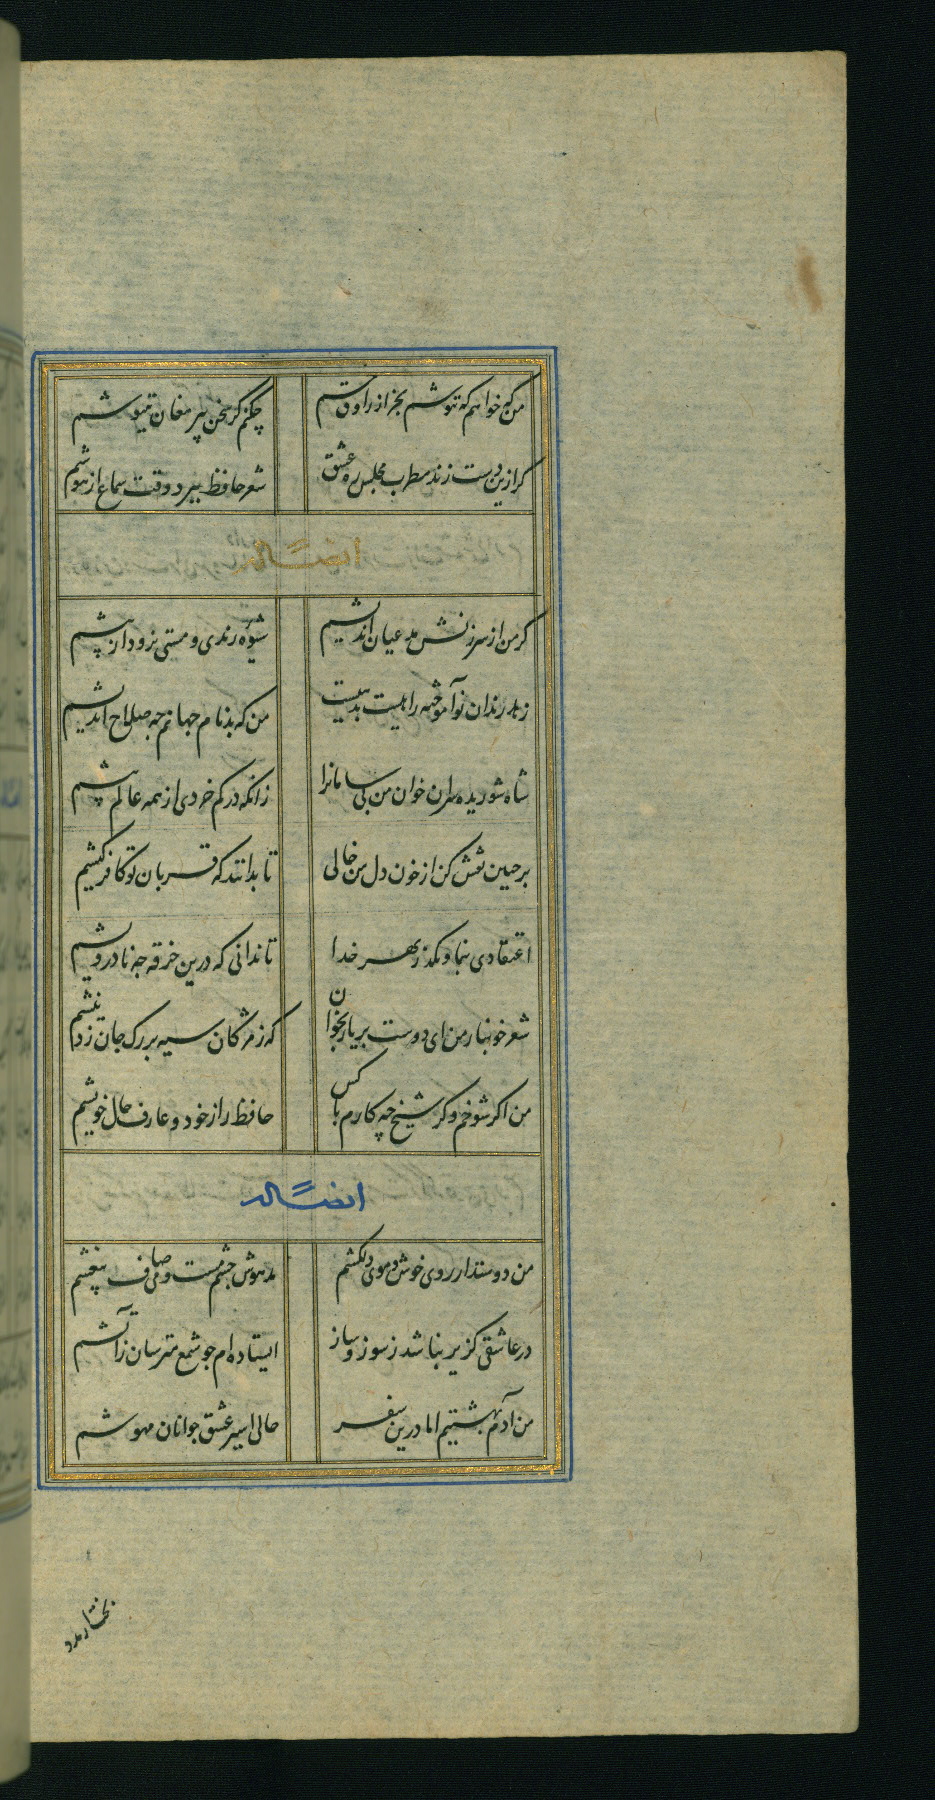 من که خواهم که ننوشم بجز از راوق خم چکنم گر سخن پیر مغان ننیوشم
گر ازین دست زند مطرب مجلس ره عشق شعر حافظ ببرد وقت سماع از هوشم
ایضاً له
گر من از سرزنش مدعیان اندیشم شیوه رندی و مستی نرود از پیشم
زهد رندان نوآموخته راهیست بدهیست من که بدنام جهانم چه صلاح اندیشم
شاه شوریده سران خوان من بی سامانرا زانکه در کم خردی از همه عالم پیشم
بر جبین نقش کن از خون دل من خالی تا بدانند که قربان تو کافر کیشم
اعتقادی بنما و بگذر بهر خدا تا ندانی که درین خرقه چه نادرویشم
شعر خونبار من ای دوست بر یار بخوان که ز مژگان سیه بر رگ جان زد نیشم
من اگر شوخم و گر شیخ چه کارم با کس حافظ راز خود و عارف حال خویشم
ایضاً له
من دوستدار روی خوش و موی دلکشم مدهوش چشم مست و می صاف بیغشم
در عاشقی گزیر نباشد ز سوز و ساز ایستاده ام چو شمع مترسان ز آتشم
من آدم بهشتیم اما درین سفر حالی اسیر عشق جوانان مهوشم
بختار مدد